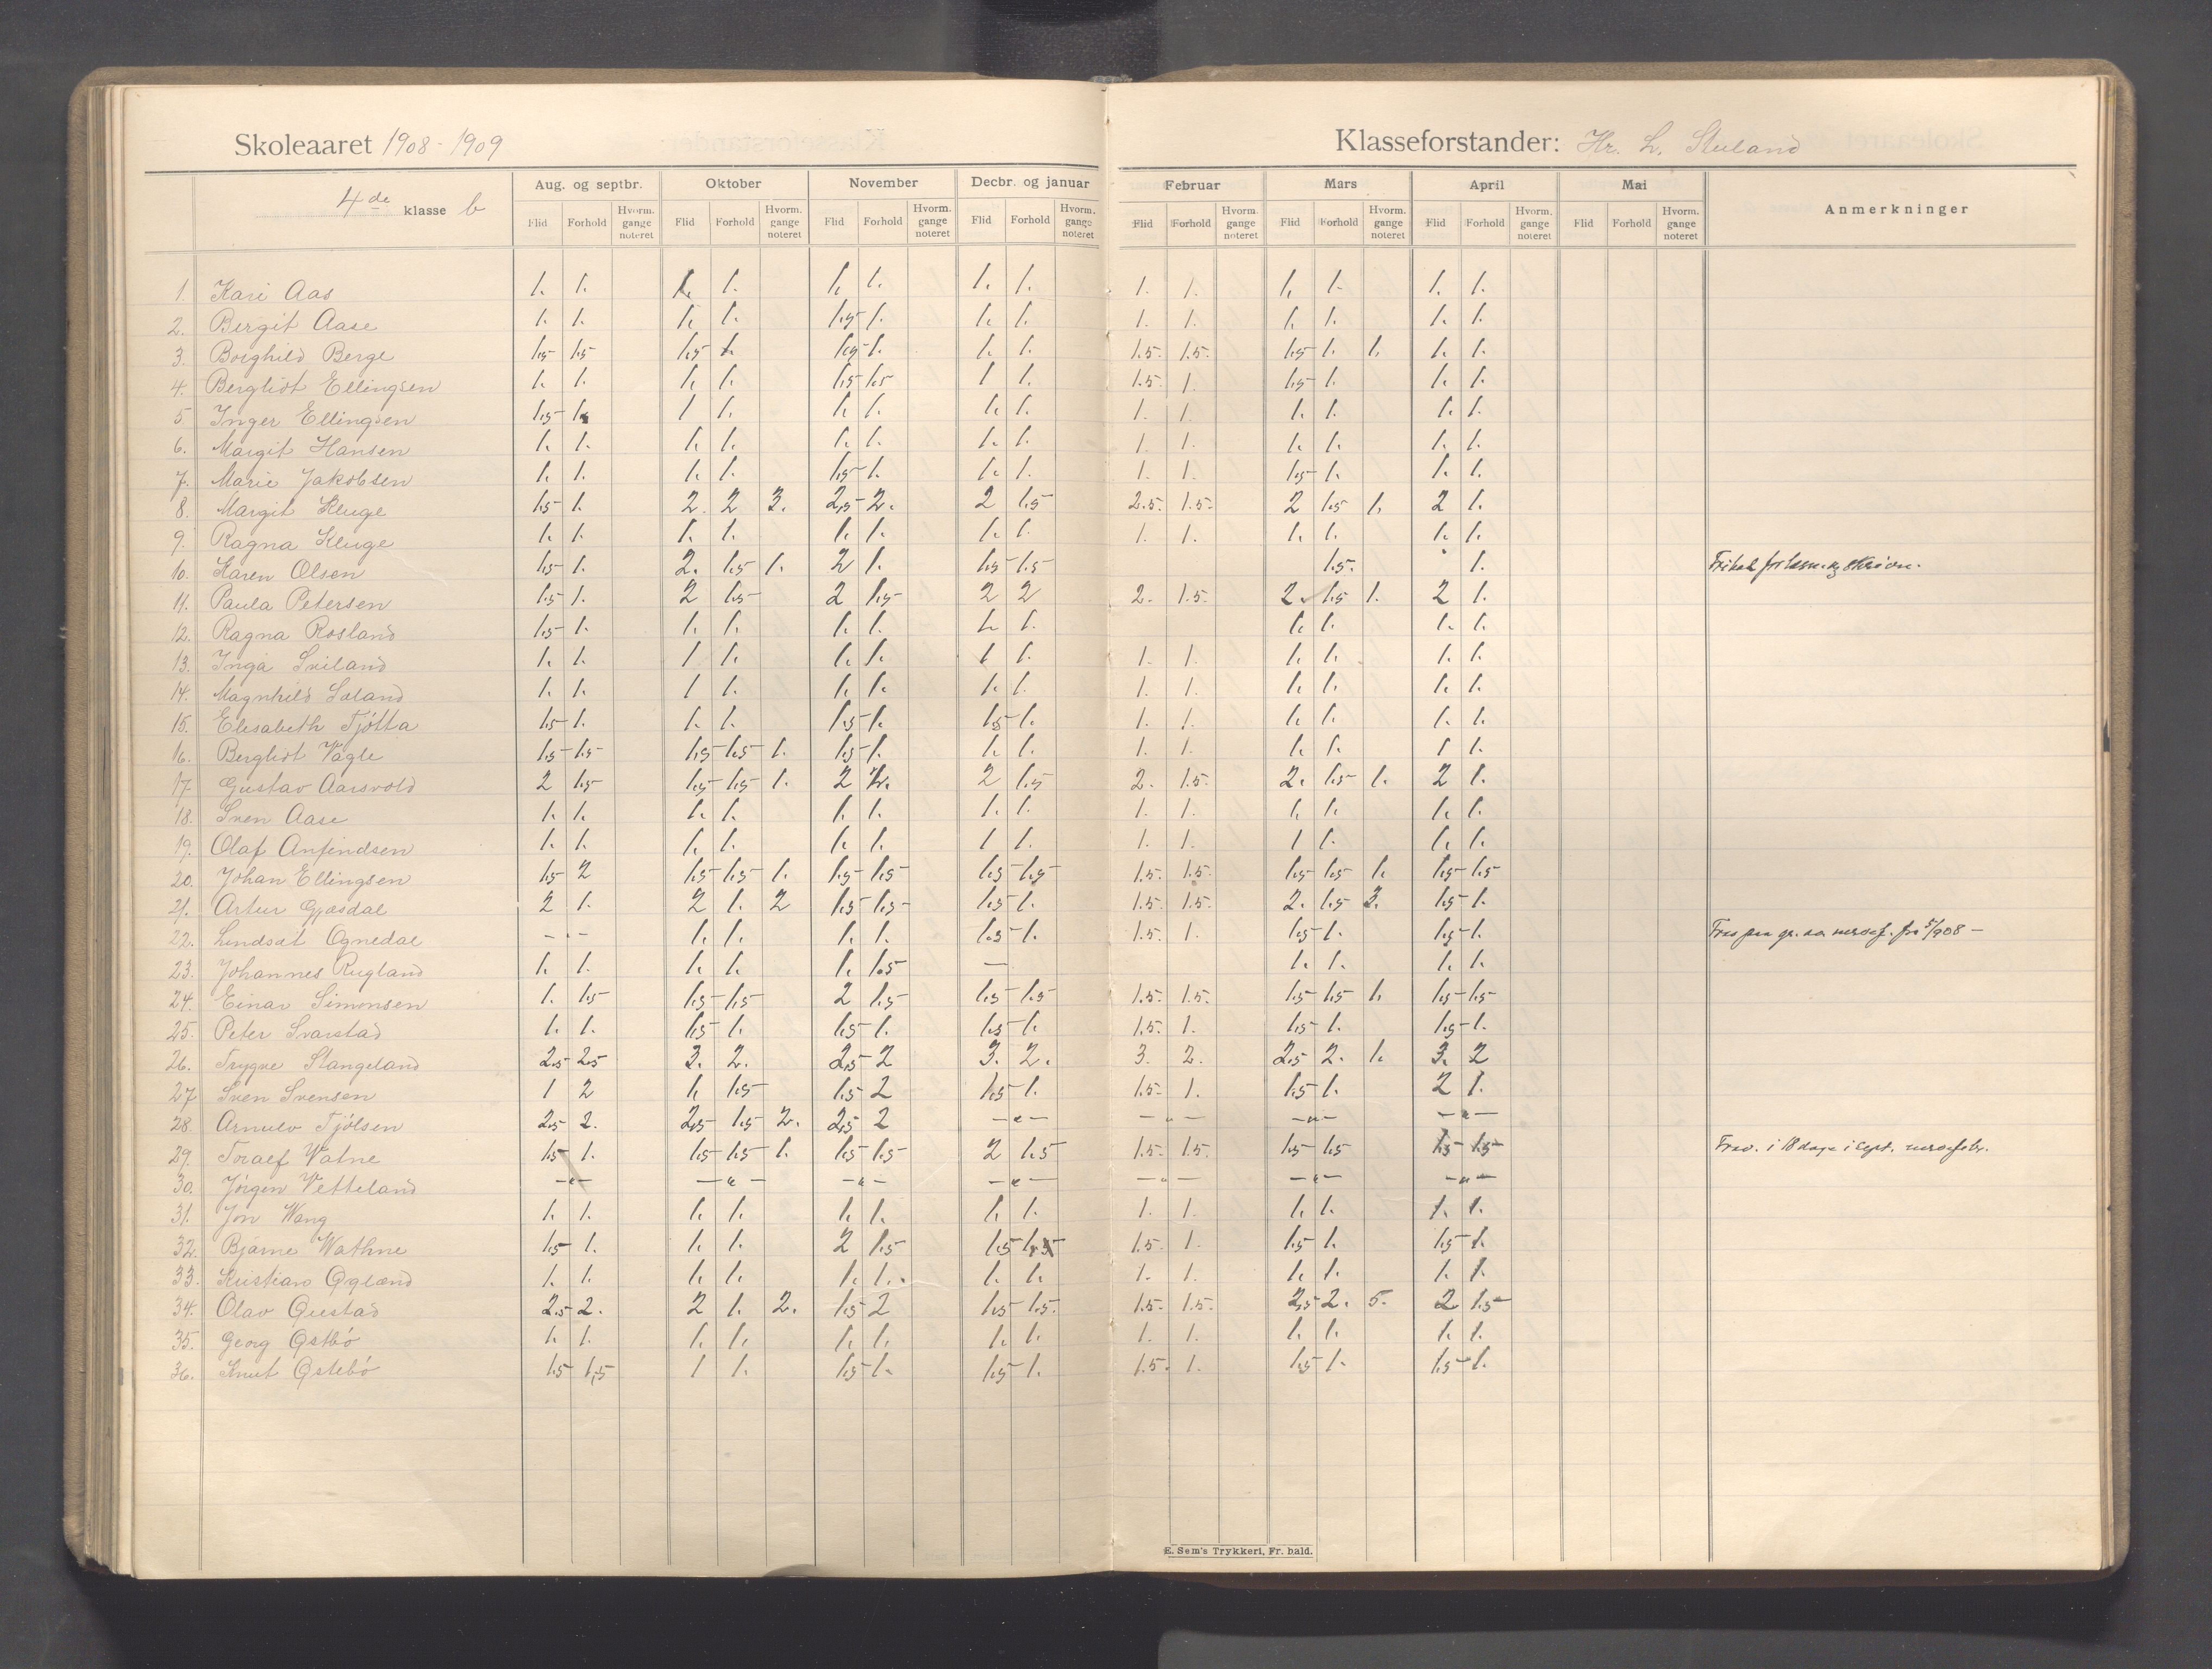 Skoleaaret 1908-1909
Klasseforstander: Hr. L.
4de klasse b
Aug. og septbr. Oktober November Decbr. og januar Februar Mars April Mai Anmerkninger
Flid Forhold Hvorm. gange noteret Flid Forhold Hvorm. gange noteret Flid Forhold Hvorm. gange noteret Flid Forhold Hvorm. gange noteret Flid Forhold Hvorm. gange noteret Flid Forhold Hvorm. gange noteret Flid Forhold Hvorm. gange noteret Flid Forhold Hvorm. gange noteret
1. Kari Aas 1. 1. 1. 1. 1. 1. 1. 1. 1. 1. 1. 1. 1. 1.
2. Bergit Aase 1. 1. 1. 1. 1.5 1. 1. 1. 1. 1. 1. 1. 1. 1.
3. Borghild Berge 1.5 1.5 1.5 1. 1.5 1. 1. 1. 1.5. 1.5. 1.5 1. 1. 1. 1.
4. Bergliot Ellingsen 1. 1. 1. 1. 1.5 1.5 1 1. 1.5. 1. 1.5 1. 1. 1.
5. Inger Ellingsen 1.5 1. 1 1. 1. 1. 1. 1. 1. 1. 1. 1. 1. 1.
6. Margit Hansen 1. 1. 1. 1. 1. 1. 1. 1. 1. 1. 1. 1. 1. 1.
7. Marie Jakobsen 1. 1. 1. 1. 1.5 1. 1. 1. 1. 1. 1.5 1. 1. 1.
8. Margit Kluge 1.5 1. 2. 2 3. 2.5 2. 2 1.5 2.5. 1.5. 2 1.5 1. 2 1.
9. Ragna Kluge 1. 1. 1. 1. 1. 1. 1. 1. 1. 1. 1. 1. 1. 1.
10. Karen Olsen 1.5 1. 2. 1.5 1. 2 1. 1.5 1.5 1.5. 1.
11. Paula Petersen 1.5 1. 2 1.5 2 1.5 2 2 2. 1.5. 2. 1.5 1. 2 1.
12. Ragna Rosland 1.5 1. 1. 1. 1. 1. 1. 1. 1. 1. 1. 1.
13. Inga Sviland 1. 1. 1 1. 1. 1. 1 1. 1. 1. 1. 1. 1. 1.
14. Magnhild Söland 1. 1. 1 1. 1. 1. 1. 1. 1. 1. 1. 1. 1. 1.
15. Elisabeth Tjötta 1.5 1. 1. 1. 1.5 1. 1.5 1. 1. 1. 1. 1. 1. 1.
16. Bergliot Vagle 1.5 1.5 1.5 1.5 1. 1.5 1. 1. 1. 1. 1. 1. 1. 1 1.
17. Gustav Aarsvold 2 1.5 1.5 1.5 1. 2 2 1.5 2. 1.5. 2. 1.5 1. 2 1.
18. Sven Aase 1. 1. 1. 1. 1. 1. 1. 1. 1. 1. 1. 1. 1. 1.
19. Olaf Anfindsen 1. 1. 1. 1. 1. 1. 1 1. 1. 1. 1 1. 1. 1.
20. Johan Ellingsen 1.5 2 1.5 1.5 1. 1.5 1.5 1.5 1.5 1.5. 1.5. 1.5 1.5 1. 1.5 1.5
21. Artur Gjösdal 2 1. 2 1. 2 1.5 1.5 1.5 1. 1.5. 1.5. 2. 1.5 1.5 1.
22. Ognedal - - - 1. 1. 1. 1. 1.5 1. 1.5. 1. 1.5 1. 1.5 1.
23. Johannes Rugland 1. 1. 1. 1. 1. 1.5 — 1. 1. 1. 1.
24. Einar Simonsen 1. 1.5 1.5 1.5 2 1.5 1.5 1.5 1.5. 1.5. 1.5 1.5 1. 1.5 1.5
25. Peter Svarstad 1. 1. 1.5 1. 1.5 1. 1.5 1. 1.5. 1. 1.5 1. 1.5 1.
26. Trygve Stangeland 2.5 2.5 3. 2. 2.5 2 3. 2. 3. 2. 2.5 2. 1. 3. 2
27 Sven Svensen 1 2 1. 1.5 1.5 2 1.5 1. 1.5. 1. 1.5 1. 2 1.
28. Arnulv Tjölsen 2.5 2. 2.5 1.5 2. 2.5 2 —„— —„— —„— —„—
29. Toralf Vatne 1.5 1. 1.5 1.5 1. 1.5 1.5 2 1.5 1.5. 1.5. 1.5 1.5 1.5 1.5 Frav. i 18 dage i sept.
30. Jörgen Vetteland —„— —„— —„— —„— —„— —„— —„—
31. Jon Wang 1. 1. 1. 1. 1. 1. 1. 1. 1. 1. 1. 1. 1. 1.
32. Bjarne Wathne 1.5 1. 1. 1. 2 1.5 1.5 1.5 1.5. 1. 1.5 1. 1.5 1.
33. Kristian Ogland 1. 1. 1. 1. 1. 1. 1. 1. 1. 1. 1. 1. 1. 1.
34. Olav 2.5 2. 2 1. 2. 1.5 2 1.5 1.5. 1.5. 1.5. 2.5 2. 5. 2. 1.5
35. Georg Östbö 1. 1. 1. 1. 1. 1. 1. 1. 1. 1. 1. 1. 1. 1.
36. Knut Östebö 1.5 1.5 1 1. 1.5 1. 1.5 1. 1.5. 1. 1.5 1. 1.5 1.
E. Sem's Trykkeri, Fr.hald.